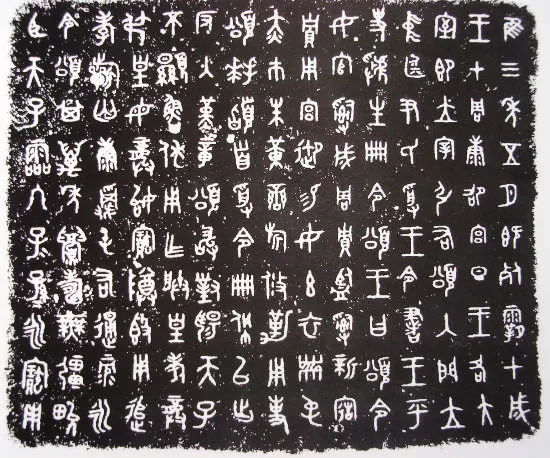 隹三年五月既死霸甲戌
王才周康卲宮旦王各大
室即立宰引右頌入門立
中廷尹氏受王令書王乎
史虢生冊令頌王曰頌令
女官𤔲成周貯監𤔲新造
貯用宮御易女玄衣黹屯
赤巿朱黃䜌旂攸勒用事
頌拜𩒨首受令冊佩以出
反入堇章頌敢對揚天子
不顯魯休用乍朕皇考龏
弔皇母龏始寶尊𣪘用追
孝𣄨匄康屯右通彔永
令頌其萬年眉壽無疆畯
臣天子霝冬子子孫孫永寶用